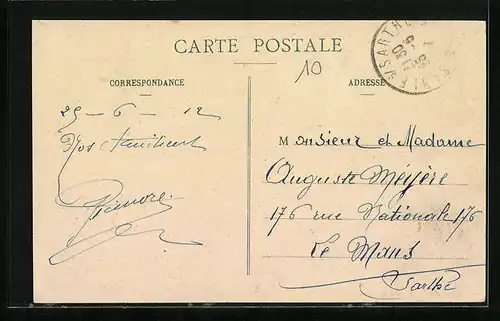 CARTE POSTALE
10
CORRESPONDANCE
ADRESSE
SARTHE
25-6-12
Monsieur et Madame
Auguste Méyère
176 rue Nationale 176
Le Mans
Sarthe